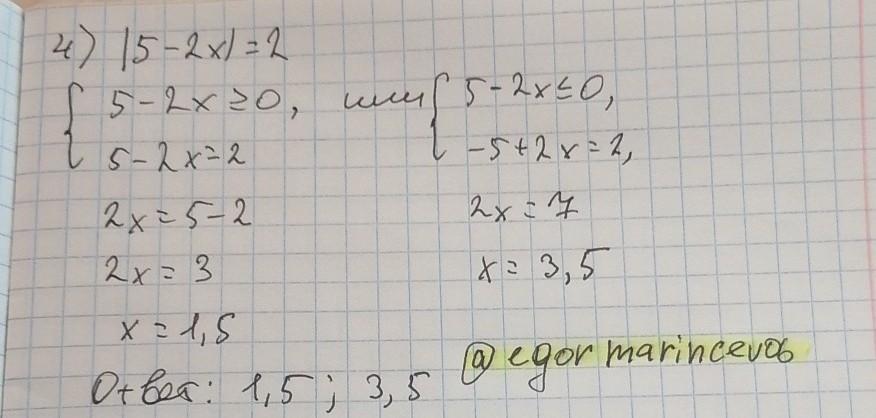 4) |5-2x|=2
{ 5-2x≥0, или { 5-2x≤0,
5-2x=2 -5+2x=2,
2x=5-2 2x=7
2x=3 x=3,5
x=1,5
Ответ: 1,5; 3,5
@egormarincevo6